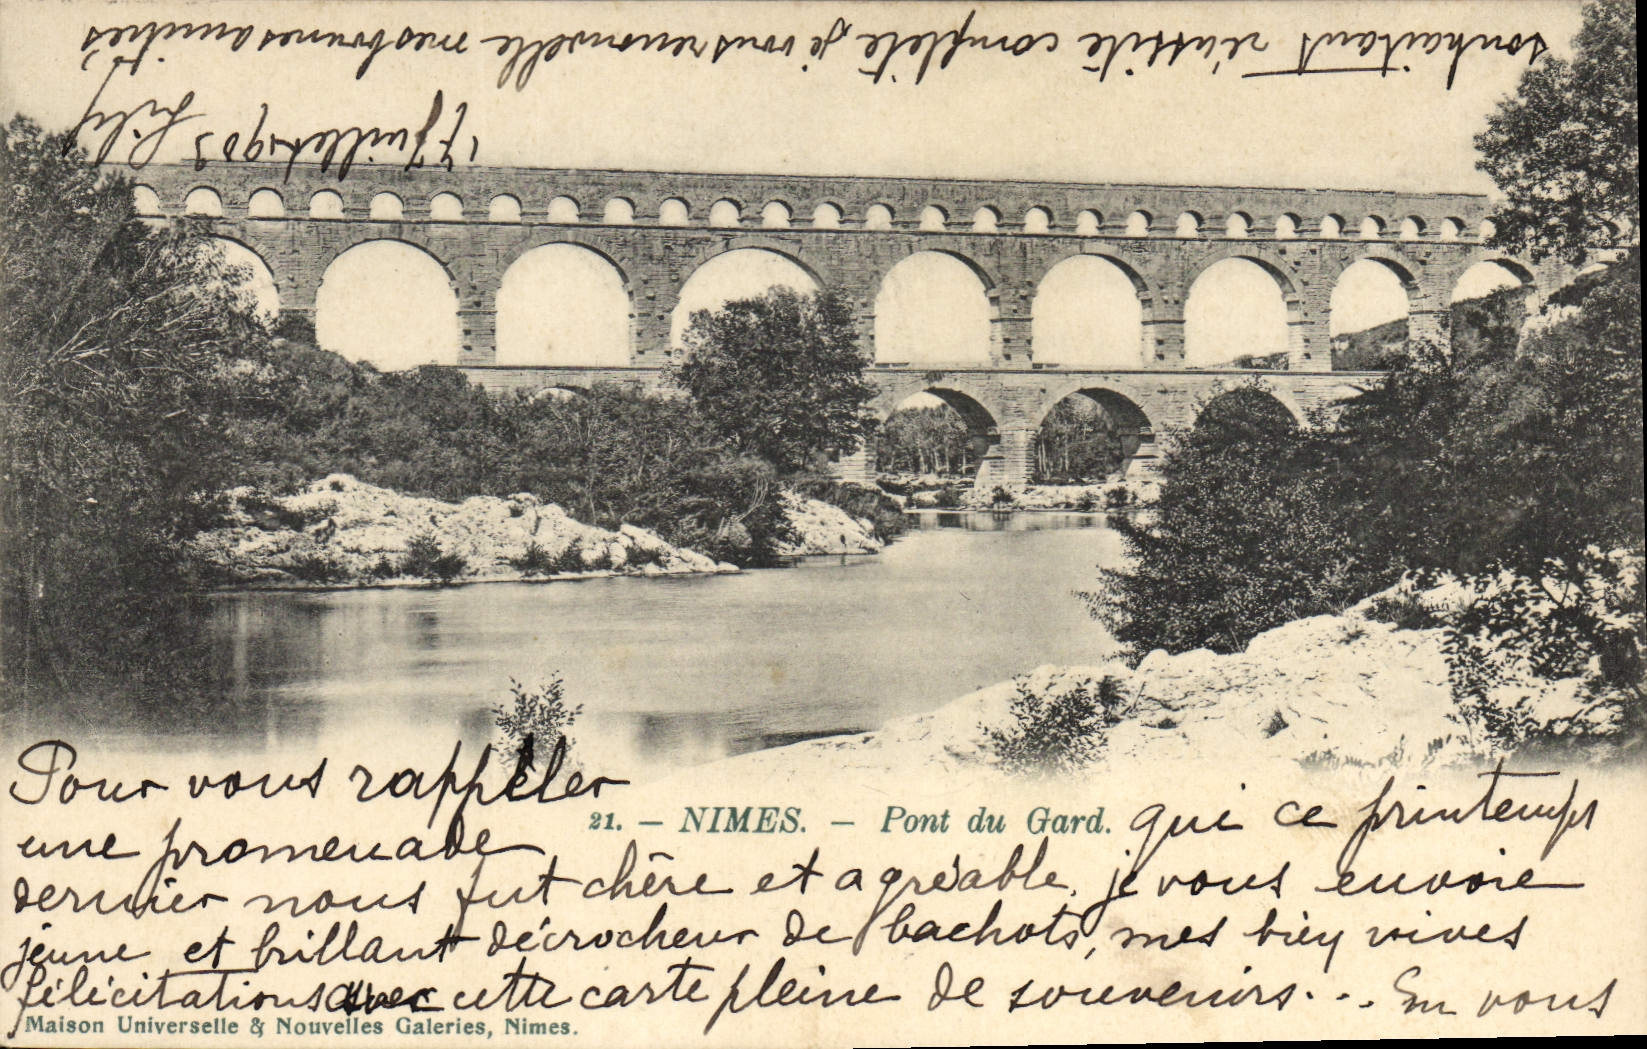 Pour vous rappeler
une promenade
21. — NIMES. — Pont du Gard.
qui ce printemps
dernier nous fut chère et agréable, je vous envoie
jeune et brillant décrocheur de bachots, mes bien vives
félicitations avec cette carte pleine de souvenirs... En vous
Maison Universelle & Nouvelles Galeries, Nimes.
souhaitant réussite complète je vous renouvelle mes bonnes amitiés
17 Juillet 1903 Lily